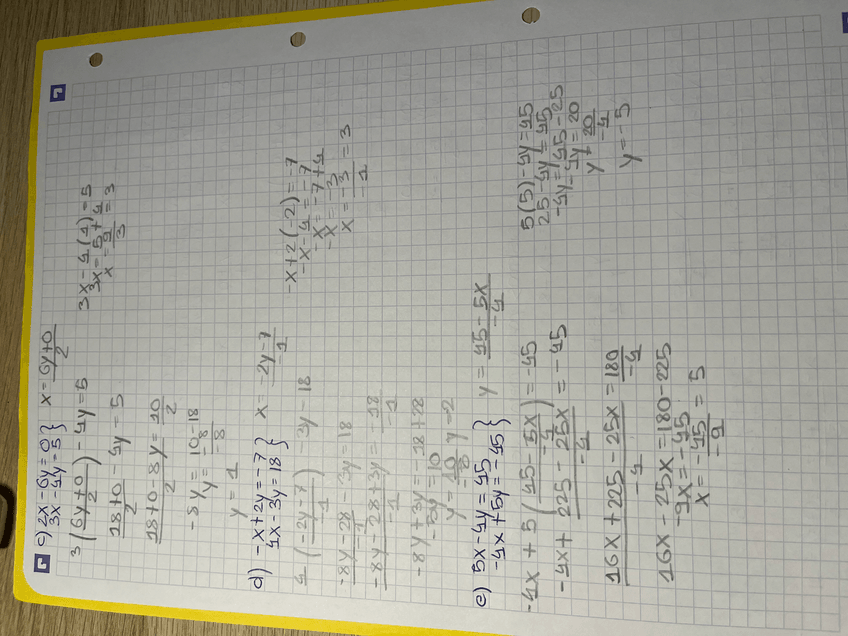 c) 2x - 6y = 0 }
3x - 4y = 5 }
x = 6y+0 / 2
3 ( 6y+0 / 2 ) - 4y = 5
18+0 / 2 - 4y = 5
18+0-8y / 2 = 10 / 2
-8y = 10-18
y = -8 / -8
y = 1
3x - 4(1) = 5
3x = 5+4
x = 9 / 3 = 3
d) -x+2y = -7 }
4x - 3y = 18 }
x = -2y-7 / -1
4 ( -2y-7 / -1 ) - 3y - 18
-8y-28 / -1 - 3y = 18
-8y-28+3y / -1 = -18 / -1
-8y+3y = -18+28
-5y = 10
y = 10
y=2
-x+2(-2) = -7
-x-4 = -7
-x = -7+4
-x = -3
x = -3 / -1 = 3
e) 5x-4y = 45 }
-4x+5y = -45 }
y = 45-5x / -4
-4x + 5 ( 45-5x / -4 ) = -45
-4x + 225-25x / -4 = -45
16x+225-25x / -4 = 180 / -4
16x-25x = 180-225
-9x = -45
x = -45 / -9 = 5
5(5)-4y=45
25-4y=45
-4y=45-25
-4y=20
y = 20 / -4
y=-5